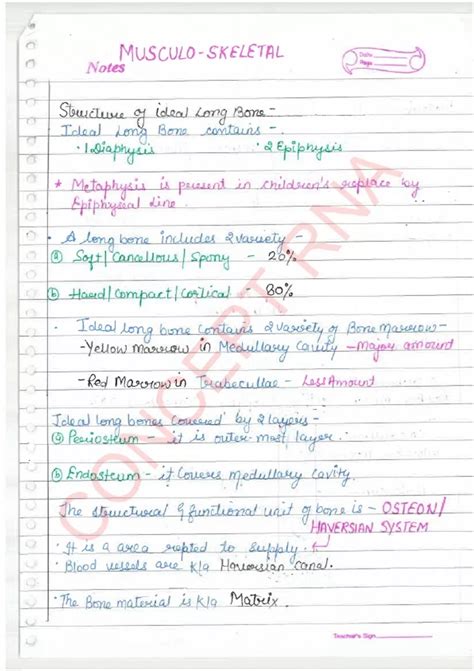 MUSCULO-SKELETAL
Notes
Date
Page
Structure of ideal Long Bone -
Ideal Long Bone contains -
• 1 Diaphysis • 2 Epiphysis
* Metaphysis is present in children's replace by
Epiphyseal Line.
• A long bone includes 2 variety -
(a) Soft/Cancellous/Spony - 20%
(b) Hard/Compact/Cortical - 80%
• Ideal long bone contains 2 variety of Bone Marrow -
- Yellow Marrow in Medullary Cavity - Major amount
- Red Marrow in Trabecullae - Less Amount
Ideal long bones covered by 2 layers -
(a) Periosteum - it is outer most layer.
(b) Endosteum - it Covers Medullary Cavity.
The structural & functional unit of bone is - OSTEON/
HAVERSIAN SYSTEM
• It is a area to supply.
• Blood vessels are k/a Haversian canal.
• The Bone material is k/a Matrix.
Teacher's Sign
CONCEPT RNA